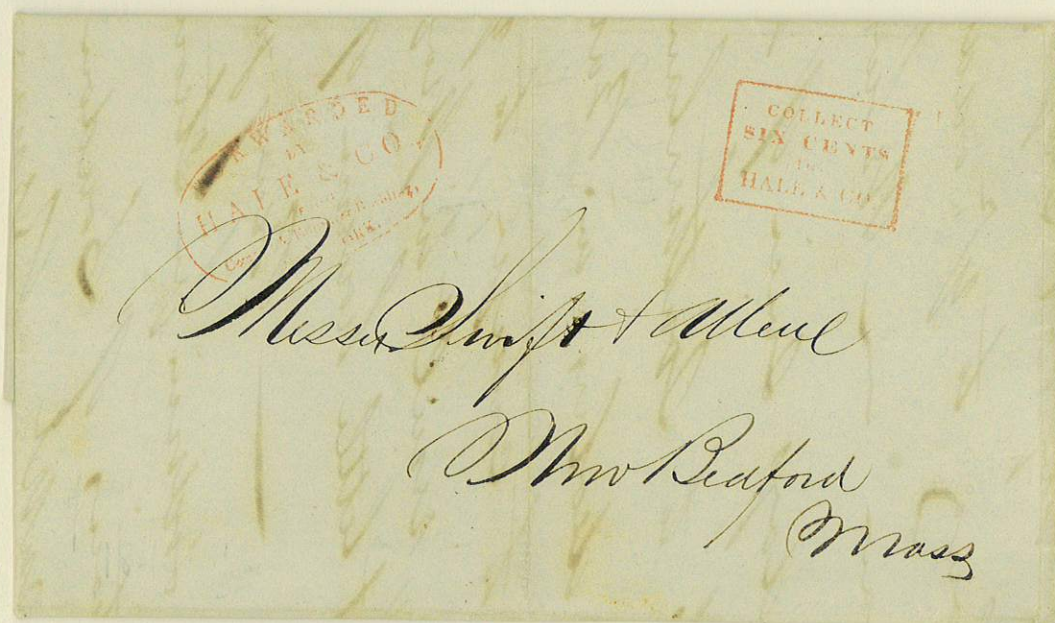 FORWARDED
BY
HALE & CO
YORK.
COLLECT
SIX CENTS
for
HALE & CO
Messrs Swift & Allen
New Bedford
Mass